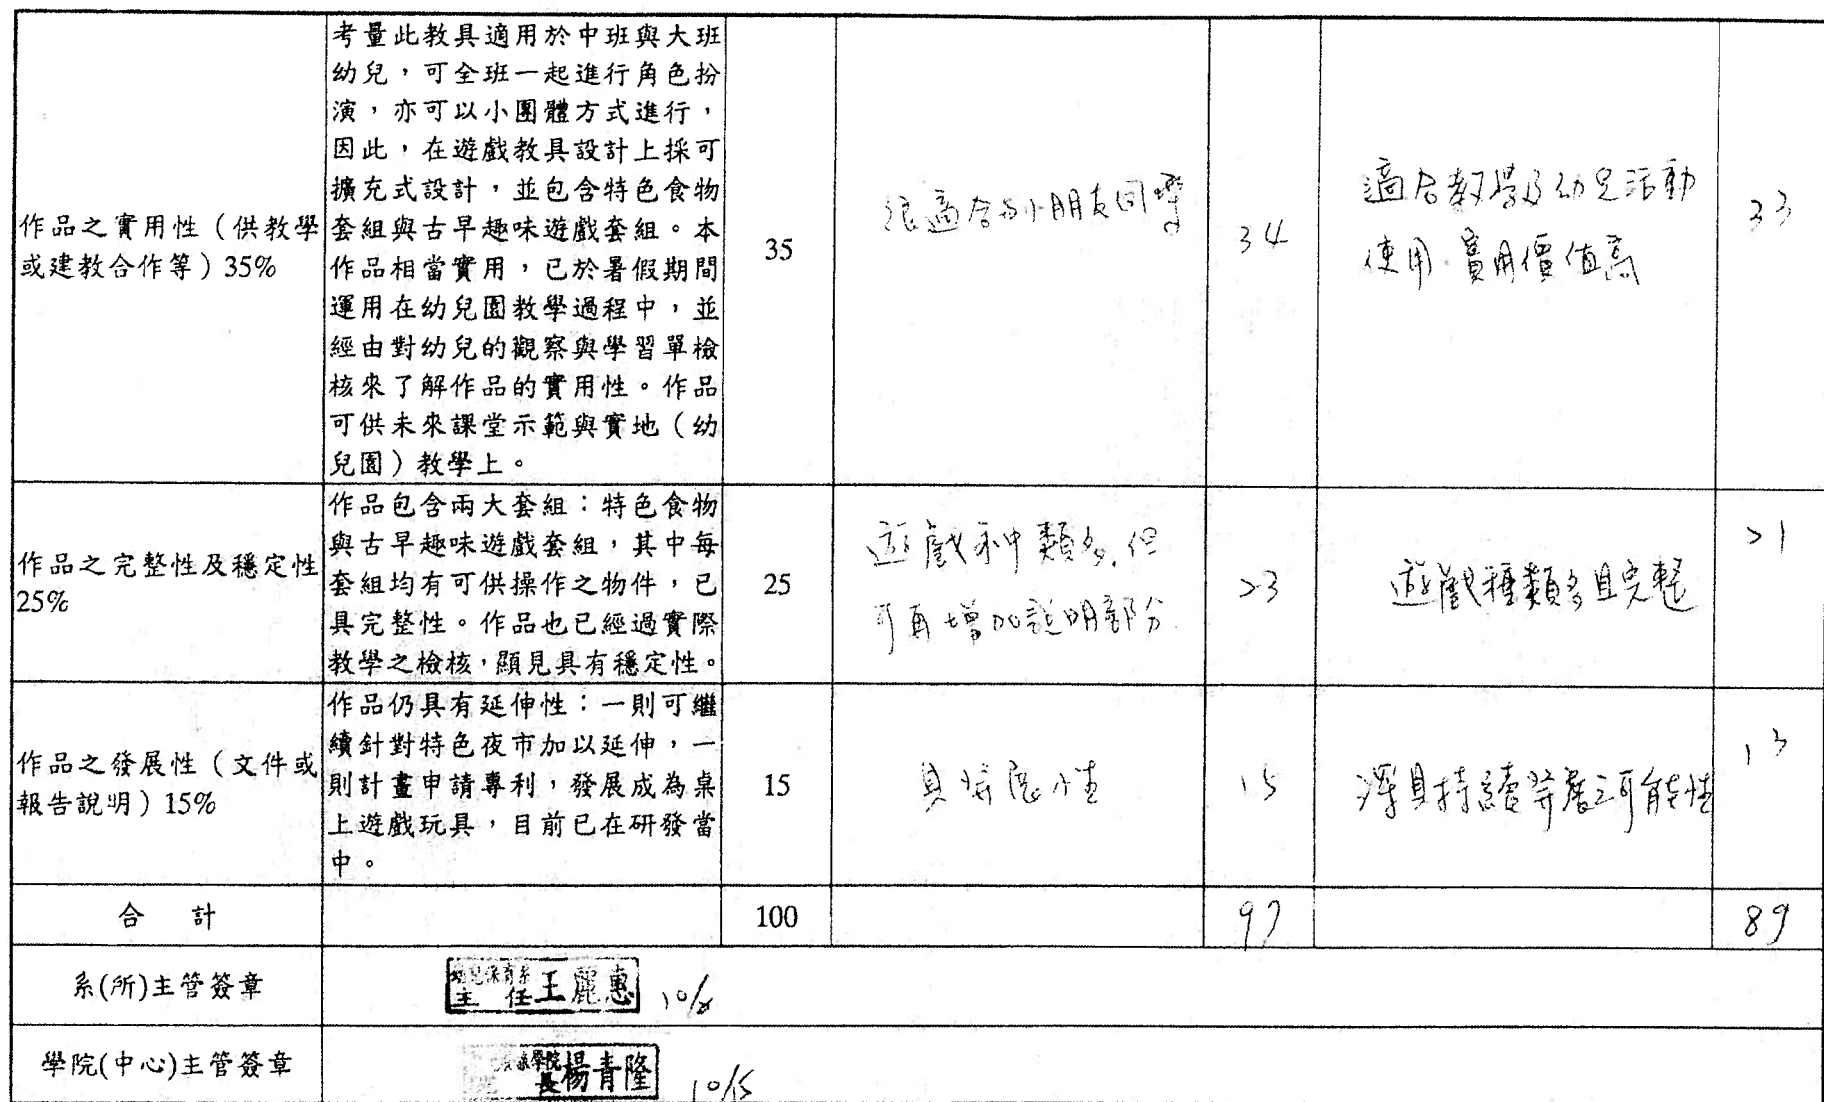 作品之實用性（供教學
或建教合作等）35%
考量此教具適用於中班與大班
幼兒，可全班一起進行角色扮
演，亦可以小團體方式進行，
因此，在遊戲教具設計上採可
擴充式設計，並包含特色食物
套組與古早趣味遊戲套組。本
作品相當實用，已於暑假期間
運用在幼兒園教學過程中，並
經由對幼兒的觀察與學習單檢
核來了解作品的實用性。作品
可供未來課堂示範與實地（幼
兒園）教學上。
35
很適合與小朋友同樂
34
適合教學及幼兒活動
使用．實用價值高
33
作品之完整性及穩定性
25%
作品包含兩大套組：特色食物
與古早趣味遊戲套組，其中每
套組均有可供操作之物件，已
具完整性。作品也已經過實際
教學之檢核，顯見具有穩定性。
25
遊戲種類多，但
可再增加說明部分
23
遊戲種類多且完整
21
作品之發展性（文件或
報告說明）15%
作品仍具有延伸性：一則可繼
續針對特色夜市加以延伸，一
則計畫申請專利，發展成為桌
上遊戲玩具，目前已在研發當
中。
15
具發展性
15
深具持續發展之可能性
13
合　計
100
97
89
系(所)主管簽章
幼兒保育系
主任王麗惠
學院(中心)主管簽章
學院
長楊青隆
10/15